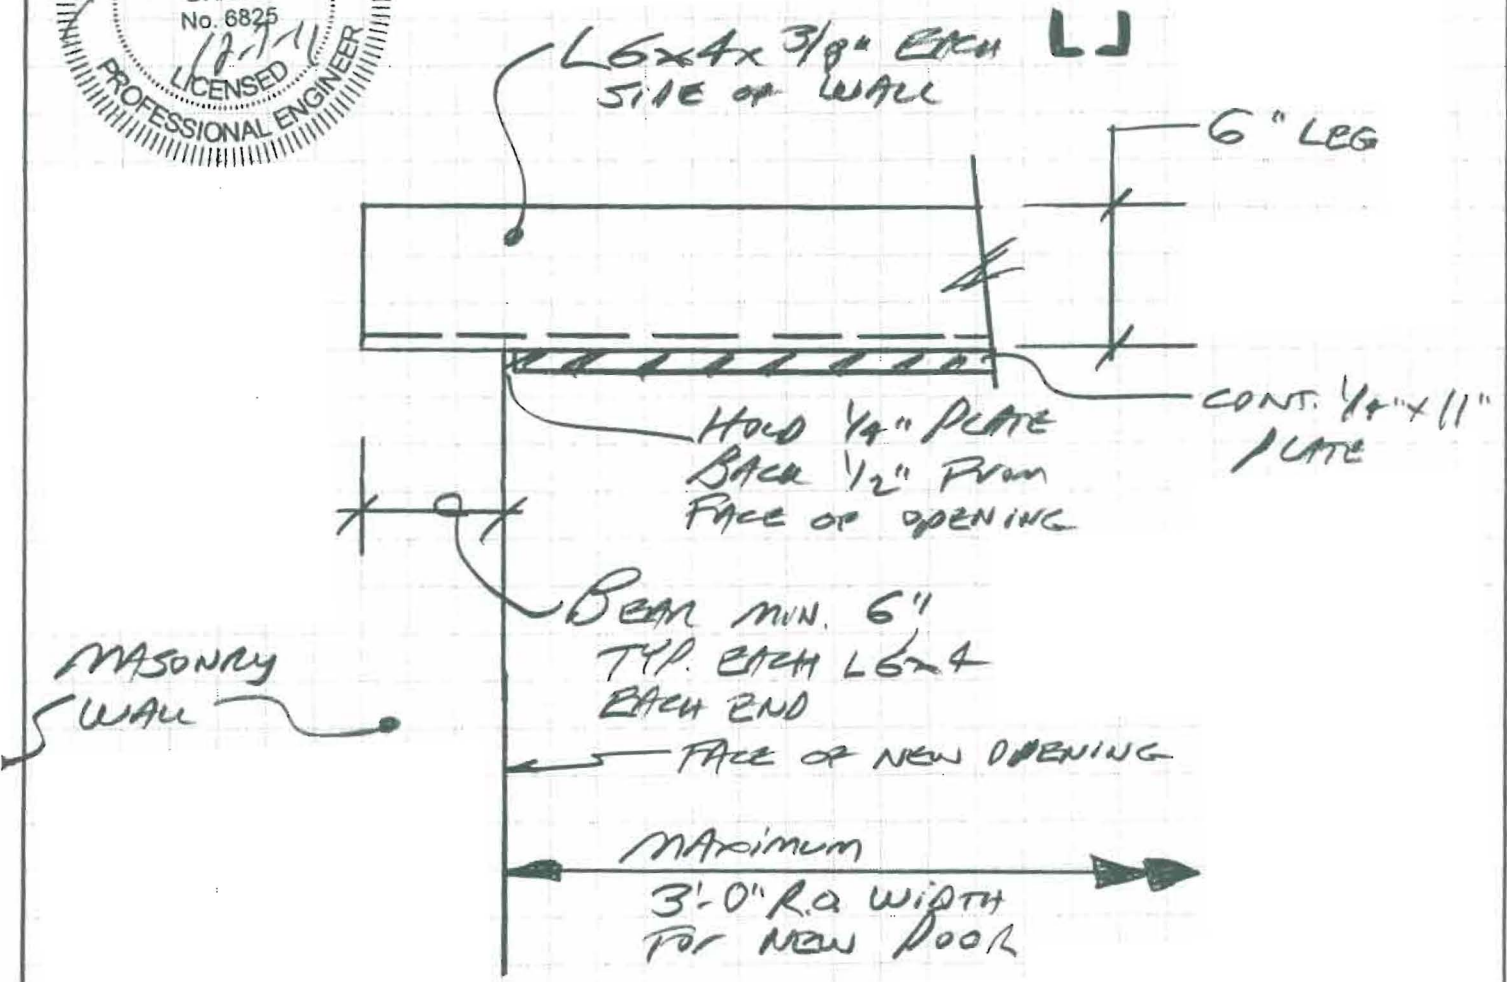 No. 6825
LICENSED
PROFESSIONAL ENGINEER
L6x4x 3/8" EACH
SIDE OF WALL
6" LEG
CONT. 1/4"x11"
PLATE
HOLD 1/4" PLATE
BACK 1/2" FROM
FACE OF OPENING
BEAR MIN. 6"
TYP. EACH L6x4
EACH END
MASONRY
WALL
FACE OF NEW OPENING
MAXIMUM
3'-0" R.O. WIDTH
FOR NEW DOOR